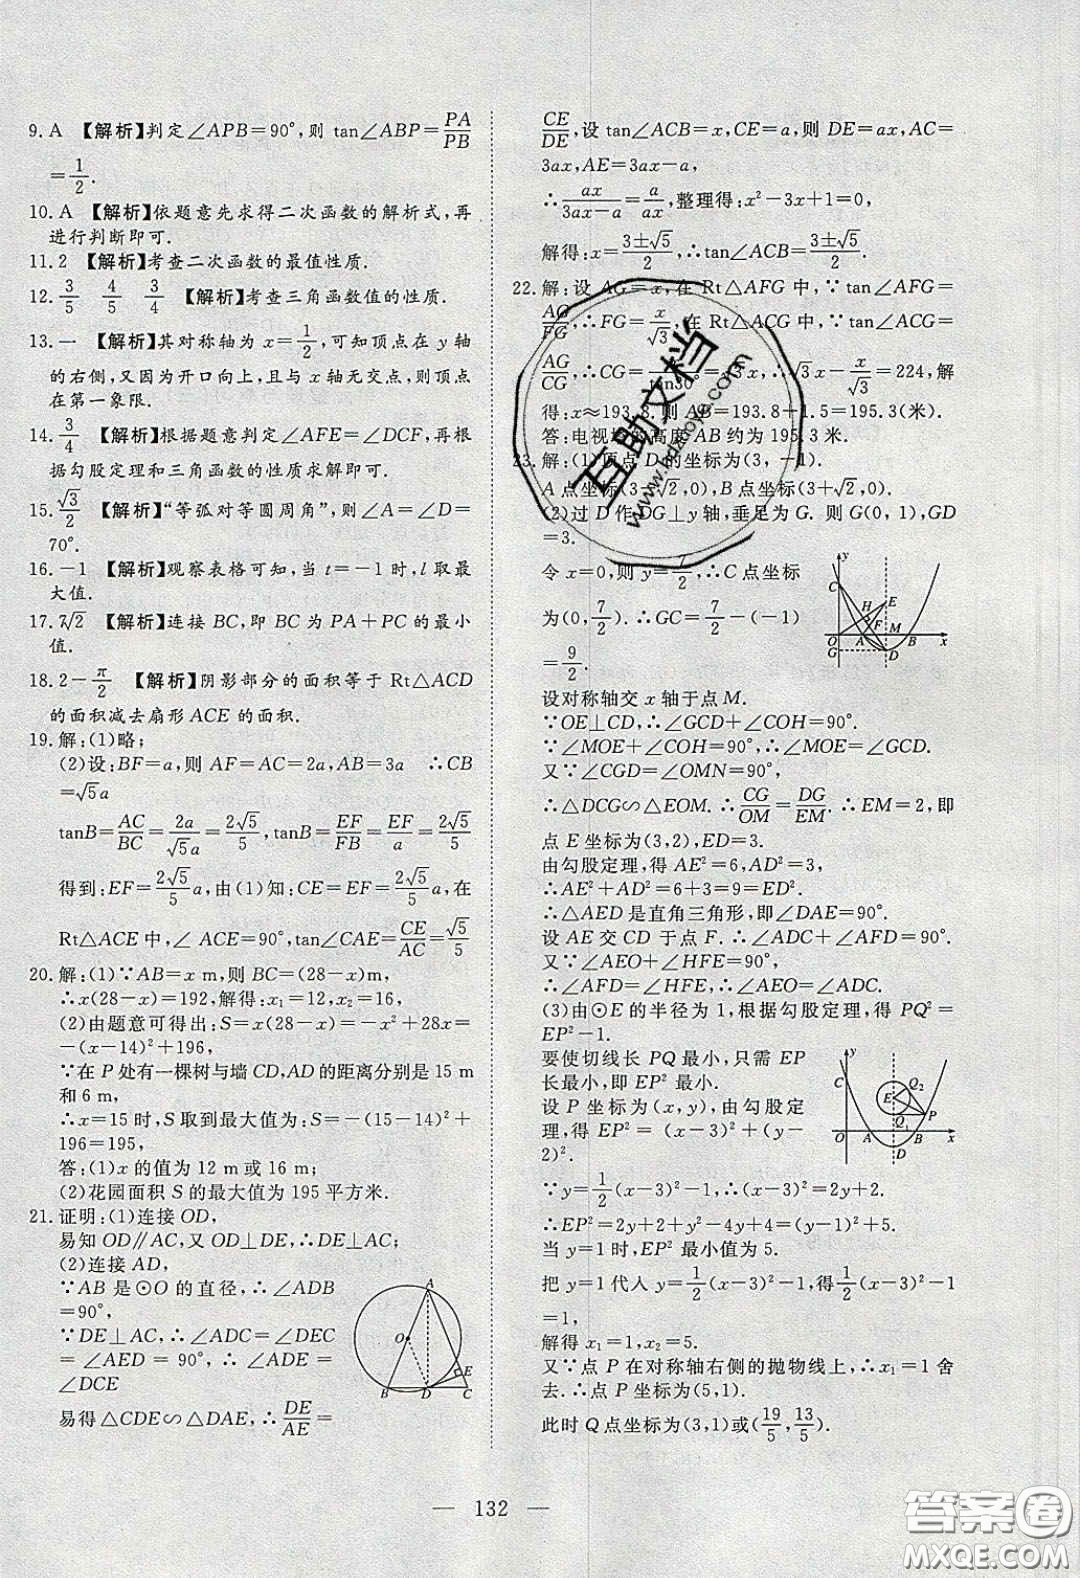 9. A 【解析】判定∠APB=90°,则 tan∠ABP=PA/PB
=1/2.
10. A 【解析】依题意先求得二次函数的解析式,再
进行判断即可.
11. 2 【解析】考查二次函数的最值性质.
12. 3/5 4/5 3/4 【解析】考查三角函数值的性质.
13. 一 【解析】其对称轴为 x=1/2,可知顶点在 y 轴
的右侧,又因为开口向上,且与 x 轴无交点,则顶点
在第一象限.
14. 3/4 【解析】根据题意判定∠AFE=∠DCF,再根
据勾股定理和三角函数的性质求解即可.
15. √3/2 【解析】“等弧对等圆周角”,则∠A=∠D=
70°.
16. -1 【解析】观察表格可知,当 t=-1 时,l 取最
大值.
17. 7√2 【解析】连接 BC,即 BC 为 PA+PC 的最小
值.
18. 2-π/2 【解析】阴影部分的面积等于 Rt△ACD
的面积减去扇形 ACE 的面积.
19. 解:(1)略;
(2)设:BF=a,则 AF=AC=2a,AB=3a ∴CB
=√5a
tanB=AC/BC=2a/√5a=2√5/5,tanB=EF/FB=EF/a=2√5/5
得到:EF=2√5/5a,由(1)知:CE=EF=2√5/5a,在
Rt△ACE 中,∠ACE=90°,tan∠CAE=CE/AC=√5/5
20. 解:(1)∵AB=x m,则 BC=(28-x)m,
∴x(28-x)=192,解得:x₁=12,x₂=16,
(2)由题意可得出:S=x(28-x)=-x²+28x=
-(x-14)²+196,
∵在 P 处有一棵树与墙 CD,AD 的距离分别是 15 m
和 6 m,
∴x=15 时,S 取到最大值为:S=-(15-14)²+
196=195,
答:(1)x 的值为 12 m 或 16 m;
(2)花园面积 S 的最大值为 195 平方米.
21. 证明:(1)连接 OD,
易知 OD∥AC,又 OD⊥DE,∴DE⊥AC;
(2)连接 AD,
∵AB 是⊙O 的直径,∴∠ADB
=90°,
∵DE⊥AC,∴∠ADC=∠DEC
=∠AED=90°,∴∠ADE=
∠DCE
易得△CDE∽△DAE,∴DE/AE=
A
O
E
B
D
C
CE/DE,设 tan∠ACB=x,CE=a,则 DE=ax,AC=
3ax,AE=3ax-a,
∴ax/(3ax-a)=a/ax,整理得:x²-3x+1=0,
解得:x=(3±√5)/2,∴tan∠ACB=(3±√5)/2.
22. 解:设 AG=x,在 Rt△AFG 中,∵tan∠AFG=
AG/FG,∴FG=x/√3,在 Rt△ACG 中,∵tan∠ACG=
AG/CG,∴CG=x/tan30°=√3x,∴√3x-x/√3=224,解
得:x≈193.8.则 AB=193.8+1.5=195.3(米).
答:电视塔的高度 AB 约为 195.3 米.
23. 解:(1)顶点 D 的坐标为(3,-1).
A 点坐标(3-√2,0),B 点坐标(3+√2,0).
(2)过 D 作 DG⊥y 轴,垂足为 G. 则 G(0,1),GD
=3.
令 x=0,则 y=7/2,∴C 点坐标
为(0,7/2).∴GC=7/2-(-1)
=9/2.
y
C
H
E
F
M
O
A
B
x
G
D
设对称轴交 x 轴于点 M.
∵OE⊥CD,∴∠GCD+∠COH=90°.
∵∠MOE+∠COH=90°,∴∠MOE=∠GCD.
又∵∠CGD=∠OMN=90°,
∴△DCG∽△EOM.∴CG/OM=DG/EM.∴EM=2,即
点 E 坐标为(3,2),ED=3.
由勾股定理,得 AE²=6,AD²=3,
∴AE²+AD²=6+3=9=ED².
∴△AED 是直角三角形,即∠DAE=90°.
设 AE 交 CD 于点 F.∴∠ADC+∠AFD=90°.
又∵∠AEO+∠HFE=90°,
∴∠AFD=∠HFE,∴∠AEO=∠ADC.
(3)由⊙E 的半径为 1,根据勾股定理,得 PQ²=
EP²-1.
要使切线长 PQ 最小,只需 EP
长最小,即 EP² 最小.
设 P 坐标为(x,y),由勾股定
理,得 EP²=(x-3)²+(y-
2)².
y
C
E
Q₂
Q₁
P
A
B
x
D
∵y=1/2(x-3)²-1,∴(x-3)²=2y+2.
∴EP²=2y+2+y²-4y+4=(y-1)²+5.
当 y=1 时,EP² 最小值为 5.
把 y=1 代人 y=1/2(x-3)²-1,得1/2(x-3)²-1
=1,
解得 x₁=1,x₂=5.
又∵点 P 在对称轴右侧的抛物线上,∴x₁=1 舍
去.∴点 P 坐标为(5,1).
此时 Q 点坐标为(3,1)或(19/5,13/5).
— 132 —
互助文档
www.hdzhoye.com
答案圈
MXQE.COM